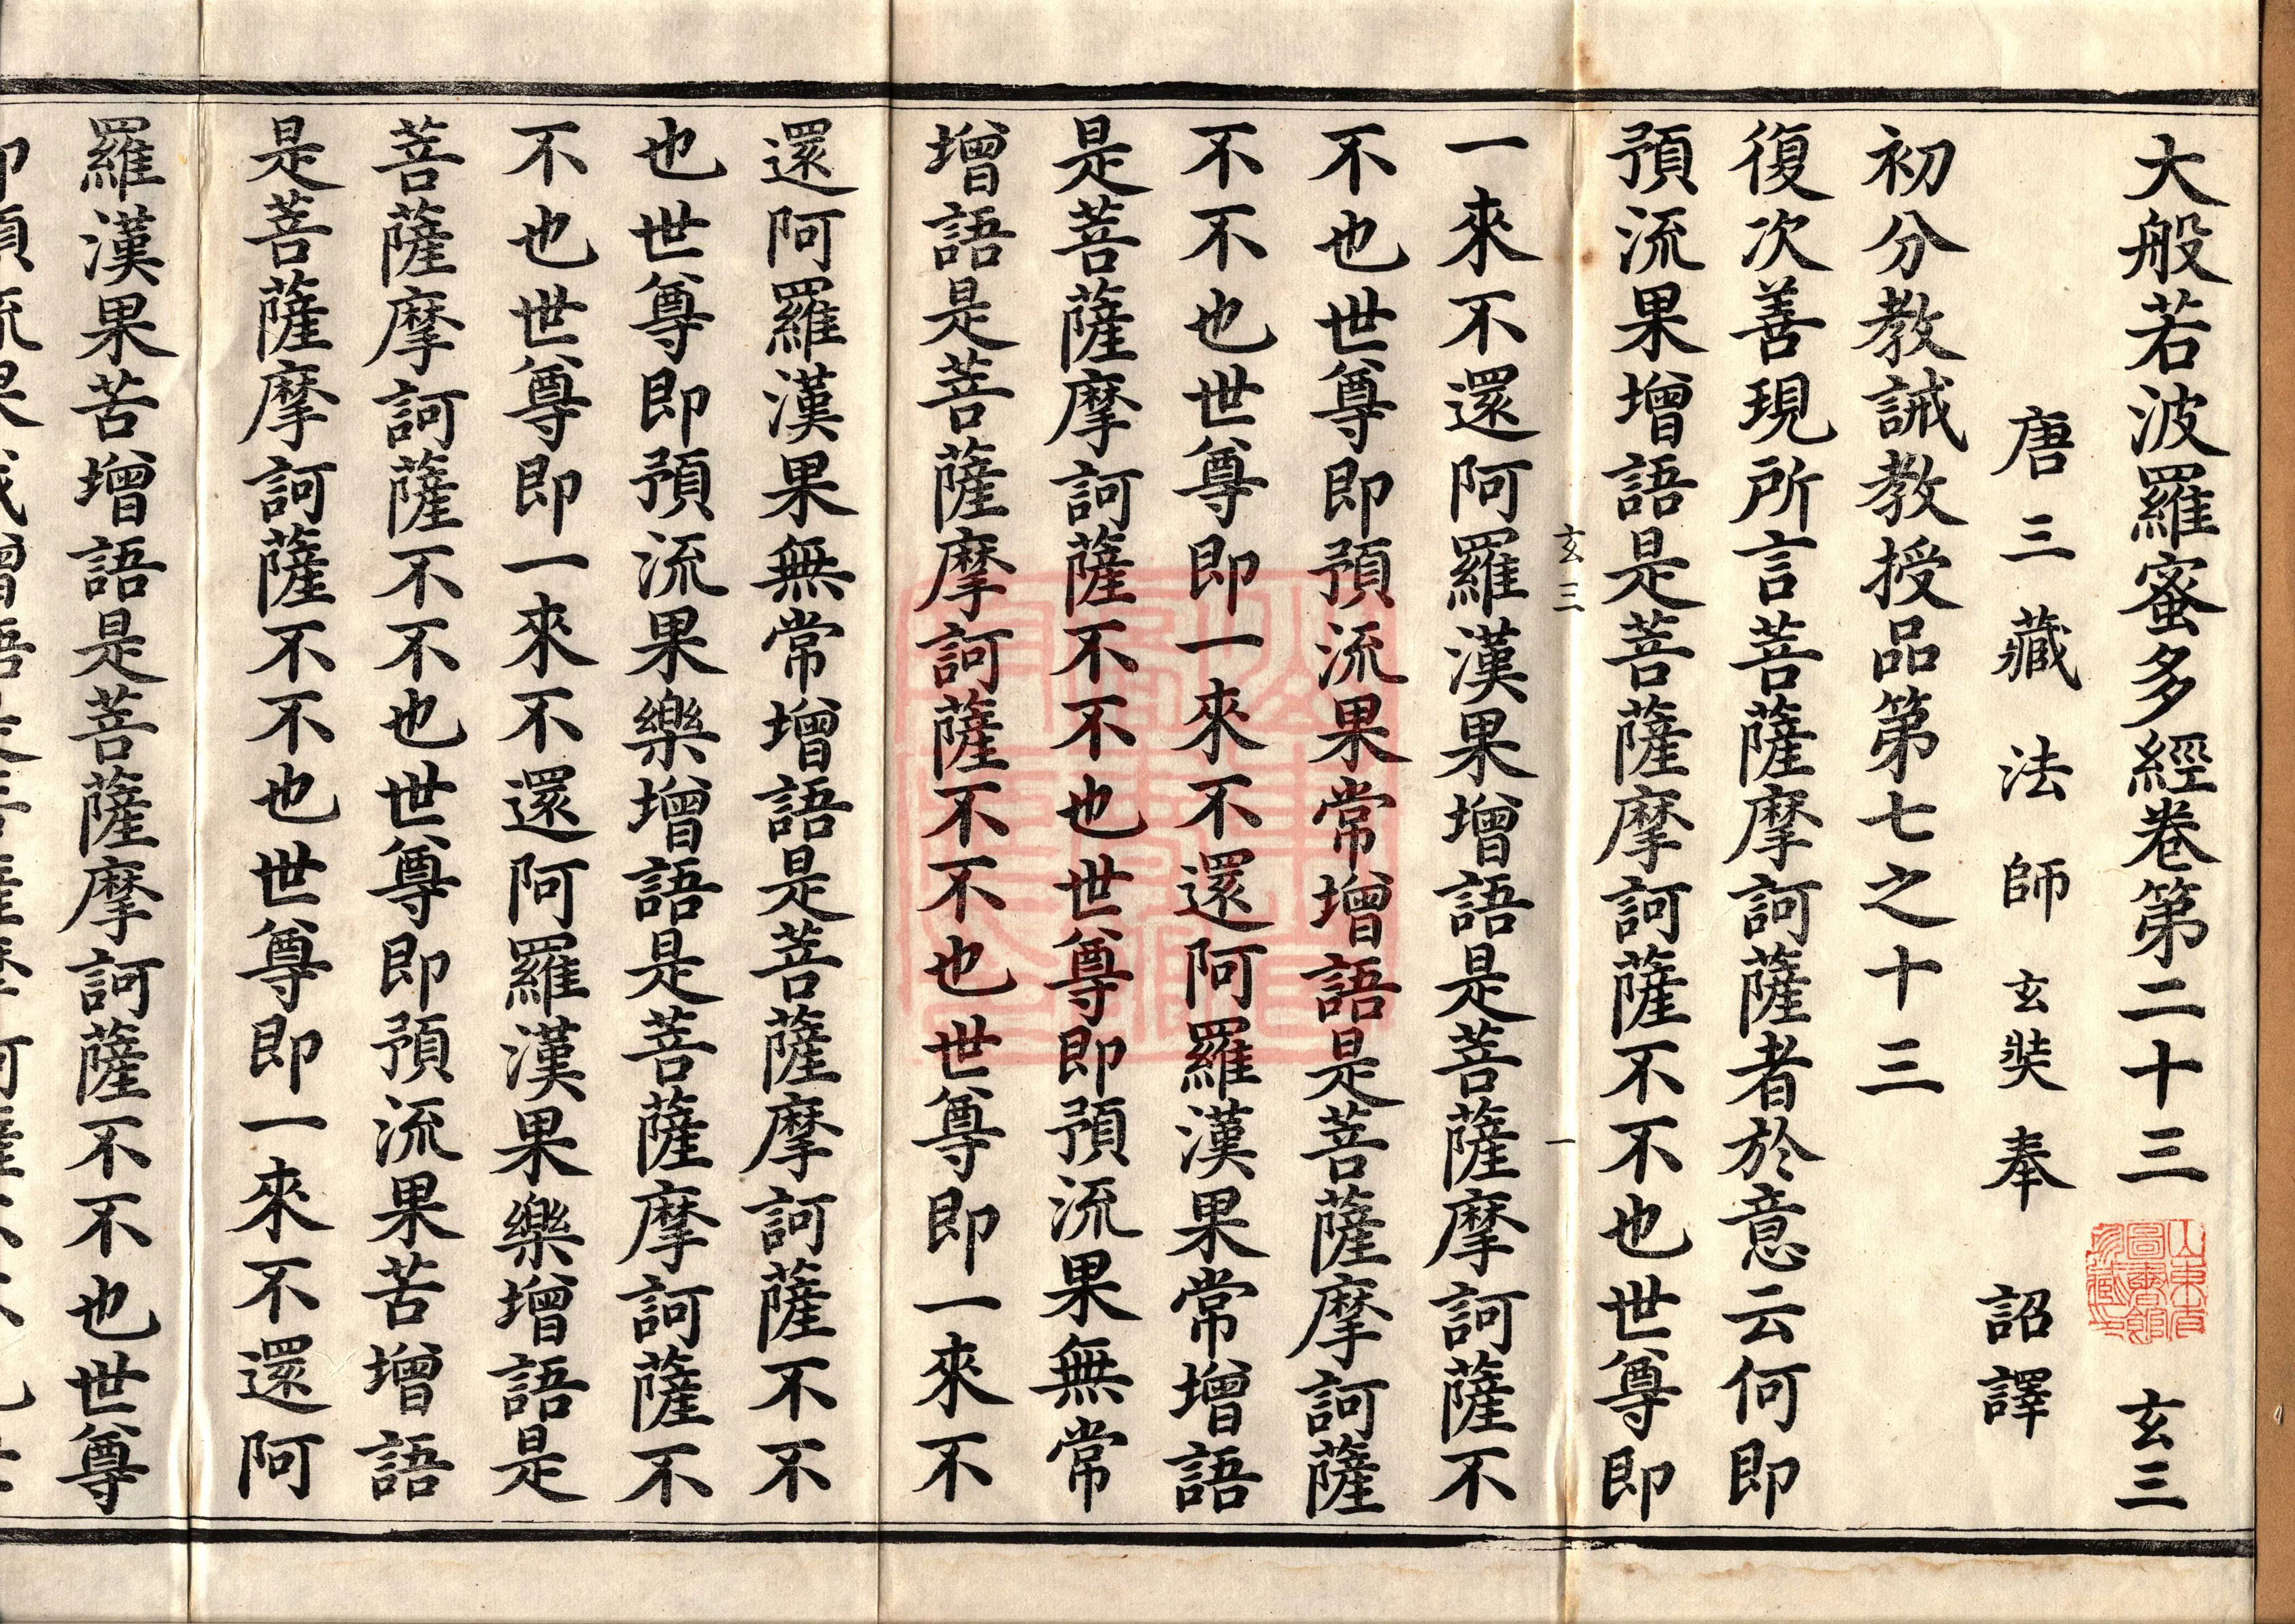 大般若波羅蜜多經卷第二十三 玄三
山東省圖書館珍藏印
唐三藏法師玄奘奉 詔譯
初分教誡教授品第七之十三
復次善現所言菩薩摩訶薩者於意云何即
預流果增語是菩薩摩訶薩不不也世尊即
玄三 一
一來不還阿羅漢果增語是菩薩摩訶薩不
不也世尊即預流果常增語是菩薩摩訶薩
不不也世尊即一來不還阿羅漢果常增語
是菩薩摩訶薩不不也世尊即預流果無常
增語是菩薩摩訶薩不不也世尊即一來不
還阿羅漢果無常增語是菩薩摩訶薩不不
也世尊即預流果樂增語是菩薩摩訶薩不
不也世尊即一來不還阿羅漢果樂增語是
菩薩摩訶薩不不也世尊即預流果苦增語
是菩薩摩訶薩不不也世尊即一來不還阿
羅漢果苦增語是菩薩摩訶薩不不也世尊